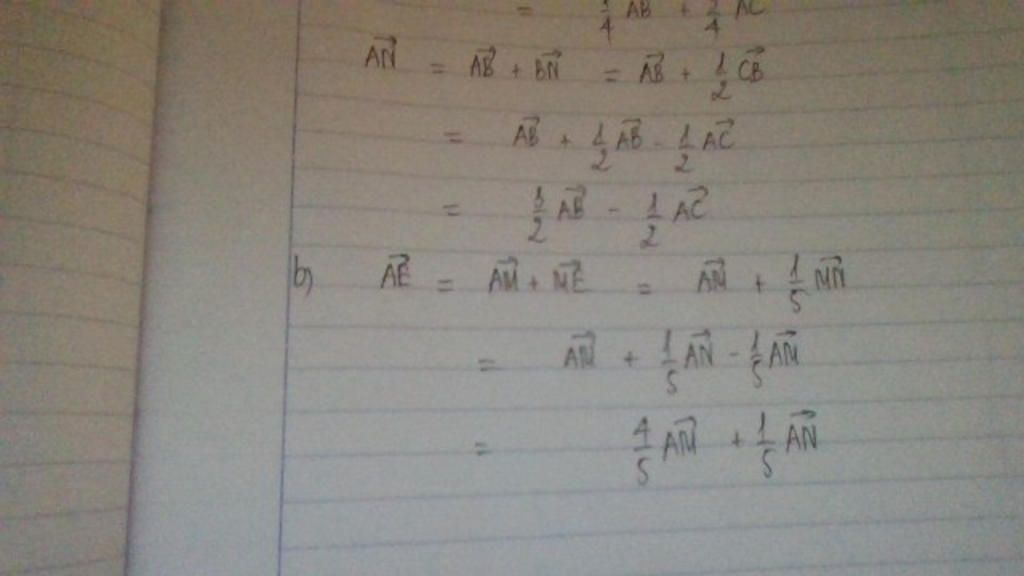 = 1/4 AB + 3/4 AC
AN⃗ = AB⃗ + BN⃗ = AB⃗ + 1/2 CB⃗
= AB⃗ + 1/2 AB⃗ - 1/2 AC⃗
= 3/2 AB⃗ - 1/2 AC⃗
b) AE⃗ = AM⃗ + ME⃗ = AM⃗ + 1/5 MN⃗
= AM⃗ + 1/5 AN⃗ - 1/5 AM⃗
= 4/5 AM⃗ + 1/5 AN⃗